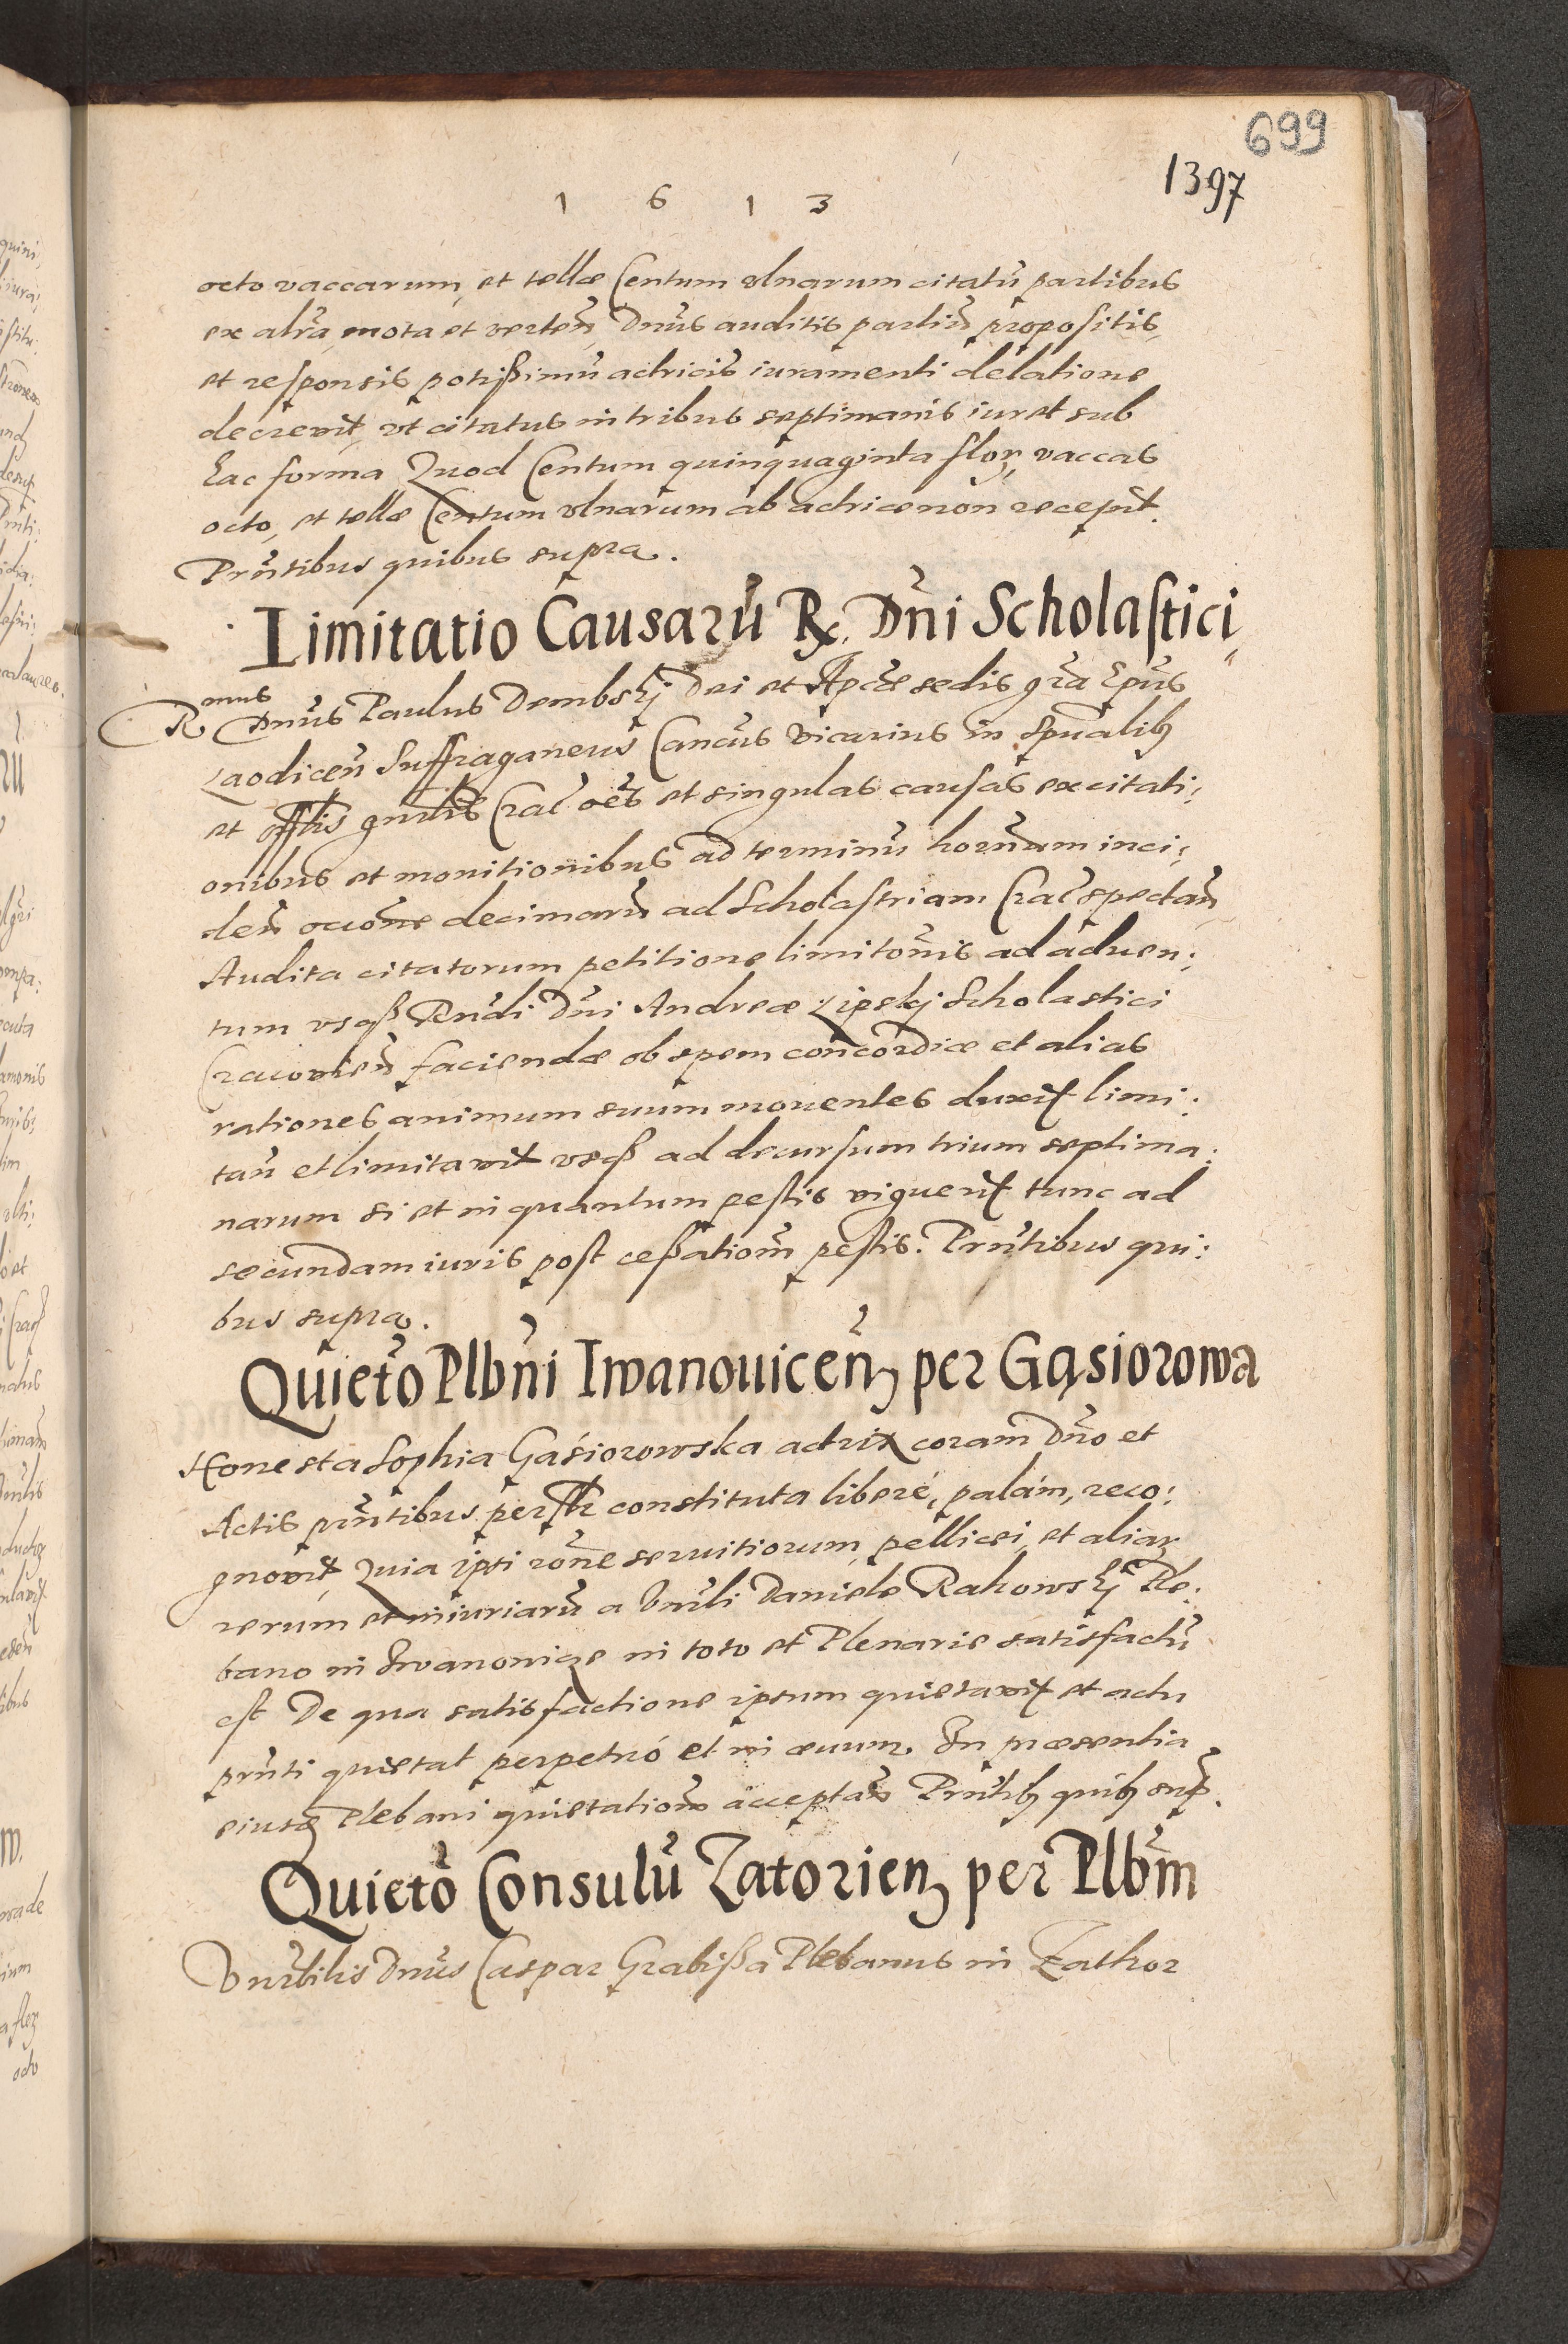 699
1397
1 6 1 3
octo vaccarum, et tellæ Centum ulnarum citatũ partibus
ex altra, mota et verteñ, Dnũs auditis partiũ propositis,
et responsis potißimũ actricis iuramenti delatione
decrevit, ut citatus in tribus septimanis iuret sub
hac forma Quod Centum quinquaginta flor, vaccas
octo, et tellæ Centum ulnarum ab actrice non recepit.
Prñtibus quibus supra.
Limitatio Causarũ R. Dñi Scholastici,
Rmus Dnũs Paulus Dembskj Dei et Aplcæ sedis gra Epũs
Laodiceñ Suffraganeus Cancũs Vicarius in Spũalibȝ
et offlis gnrlis Crac̃ oẽs et singulas causas ex citati:
onibus et monitionibus ad terminũ hornũm inci:
deñ occõne decimarũ ad Scholastriam Crac̃ spectañ
Audita citatorum petitione limitõnis ad aduen:
tum usqȝ Rendi Dñi Andreæ Lipskj Scholastici
Cracovieñ faciendæ ob spem concordiæ et alias
rationes animum suum mouentes duxit limi:
tañ et limitavit usqȝ ad decursum trium septima:
narum si et in quantum pestis viguerit tunc ad
secundam iuris post ceßatiom̃ pestis. Prñtibus qui:
bus supra.
Quietõ Plbñi Iwanouiceñ per Gąsiorowa
Honesta Sophia Gąsiorowska actrix coram Dño et
Actis prñtibus perslr constituta liberé, palám, reco:
gnovit, Quia ipsi rõne seruitiorum, pellicei, et aliar
rerum et iniuriarũ a Vnrli Daniele Rakowskj Ple:
bano in Iwanowice in toto et Plenarie satisfactũ
est De qua satisfactione ipsum quietavit et actu
prñti quietat perpetuó et in ævum. In præsentia
eiusd Plebani quietationẽ acceptañ Prñtibȝ quibȝ sup.
Quietõ Consulũ Zatorien per Plbm̃
Vnrbilis Dnũs Caspar Grabißa Plebanus in Zathor